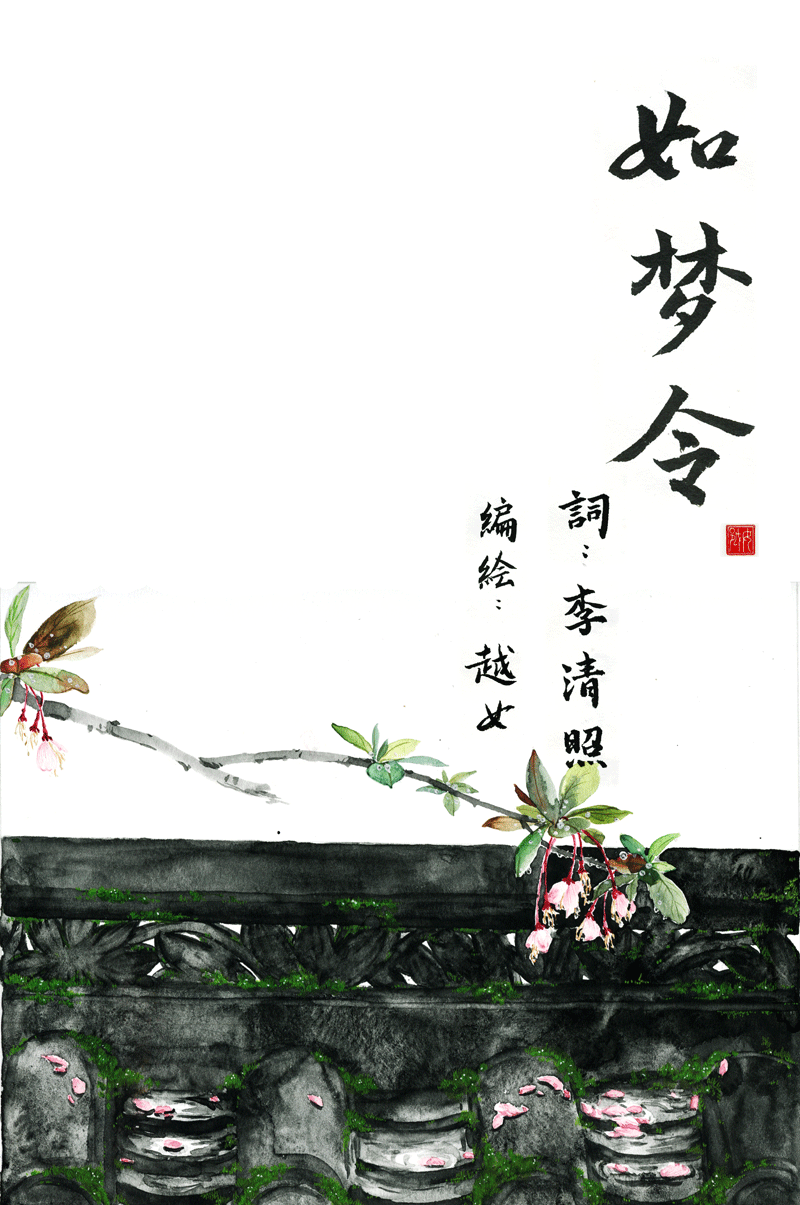 如梦令
詞：李清照
編絵：越女